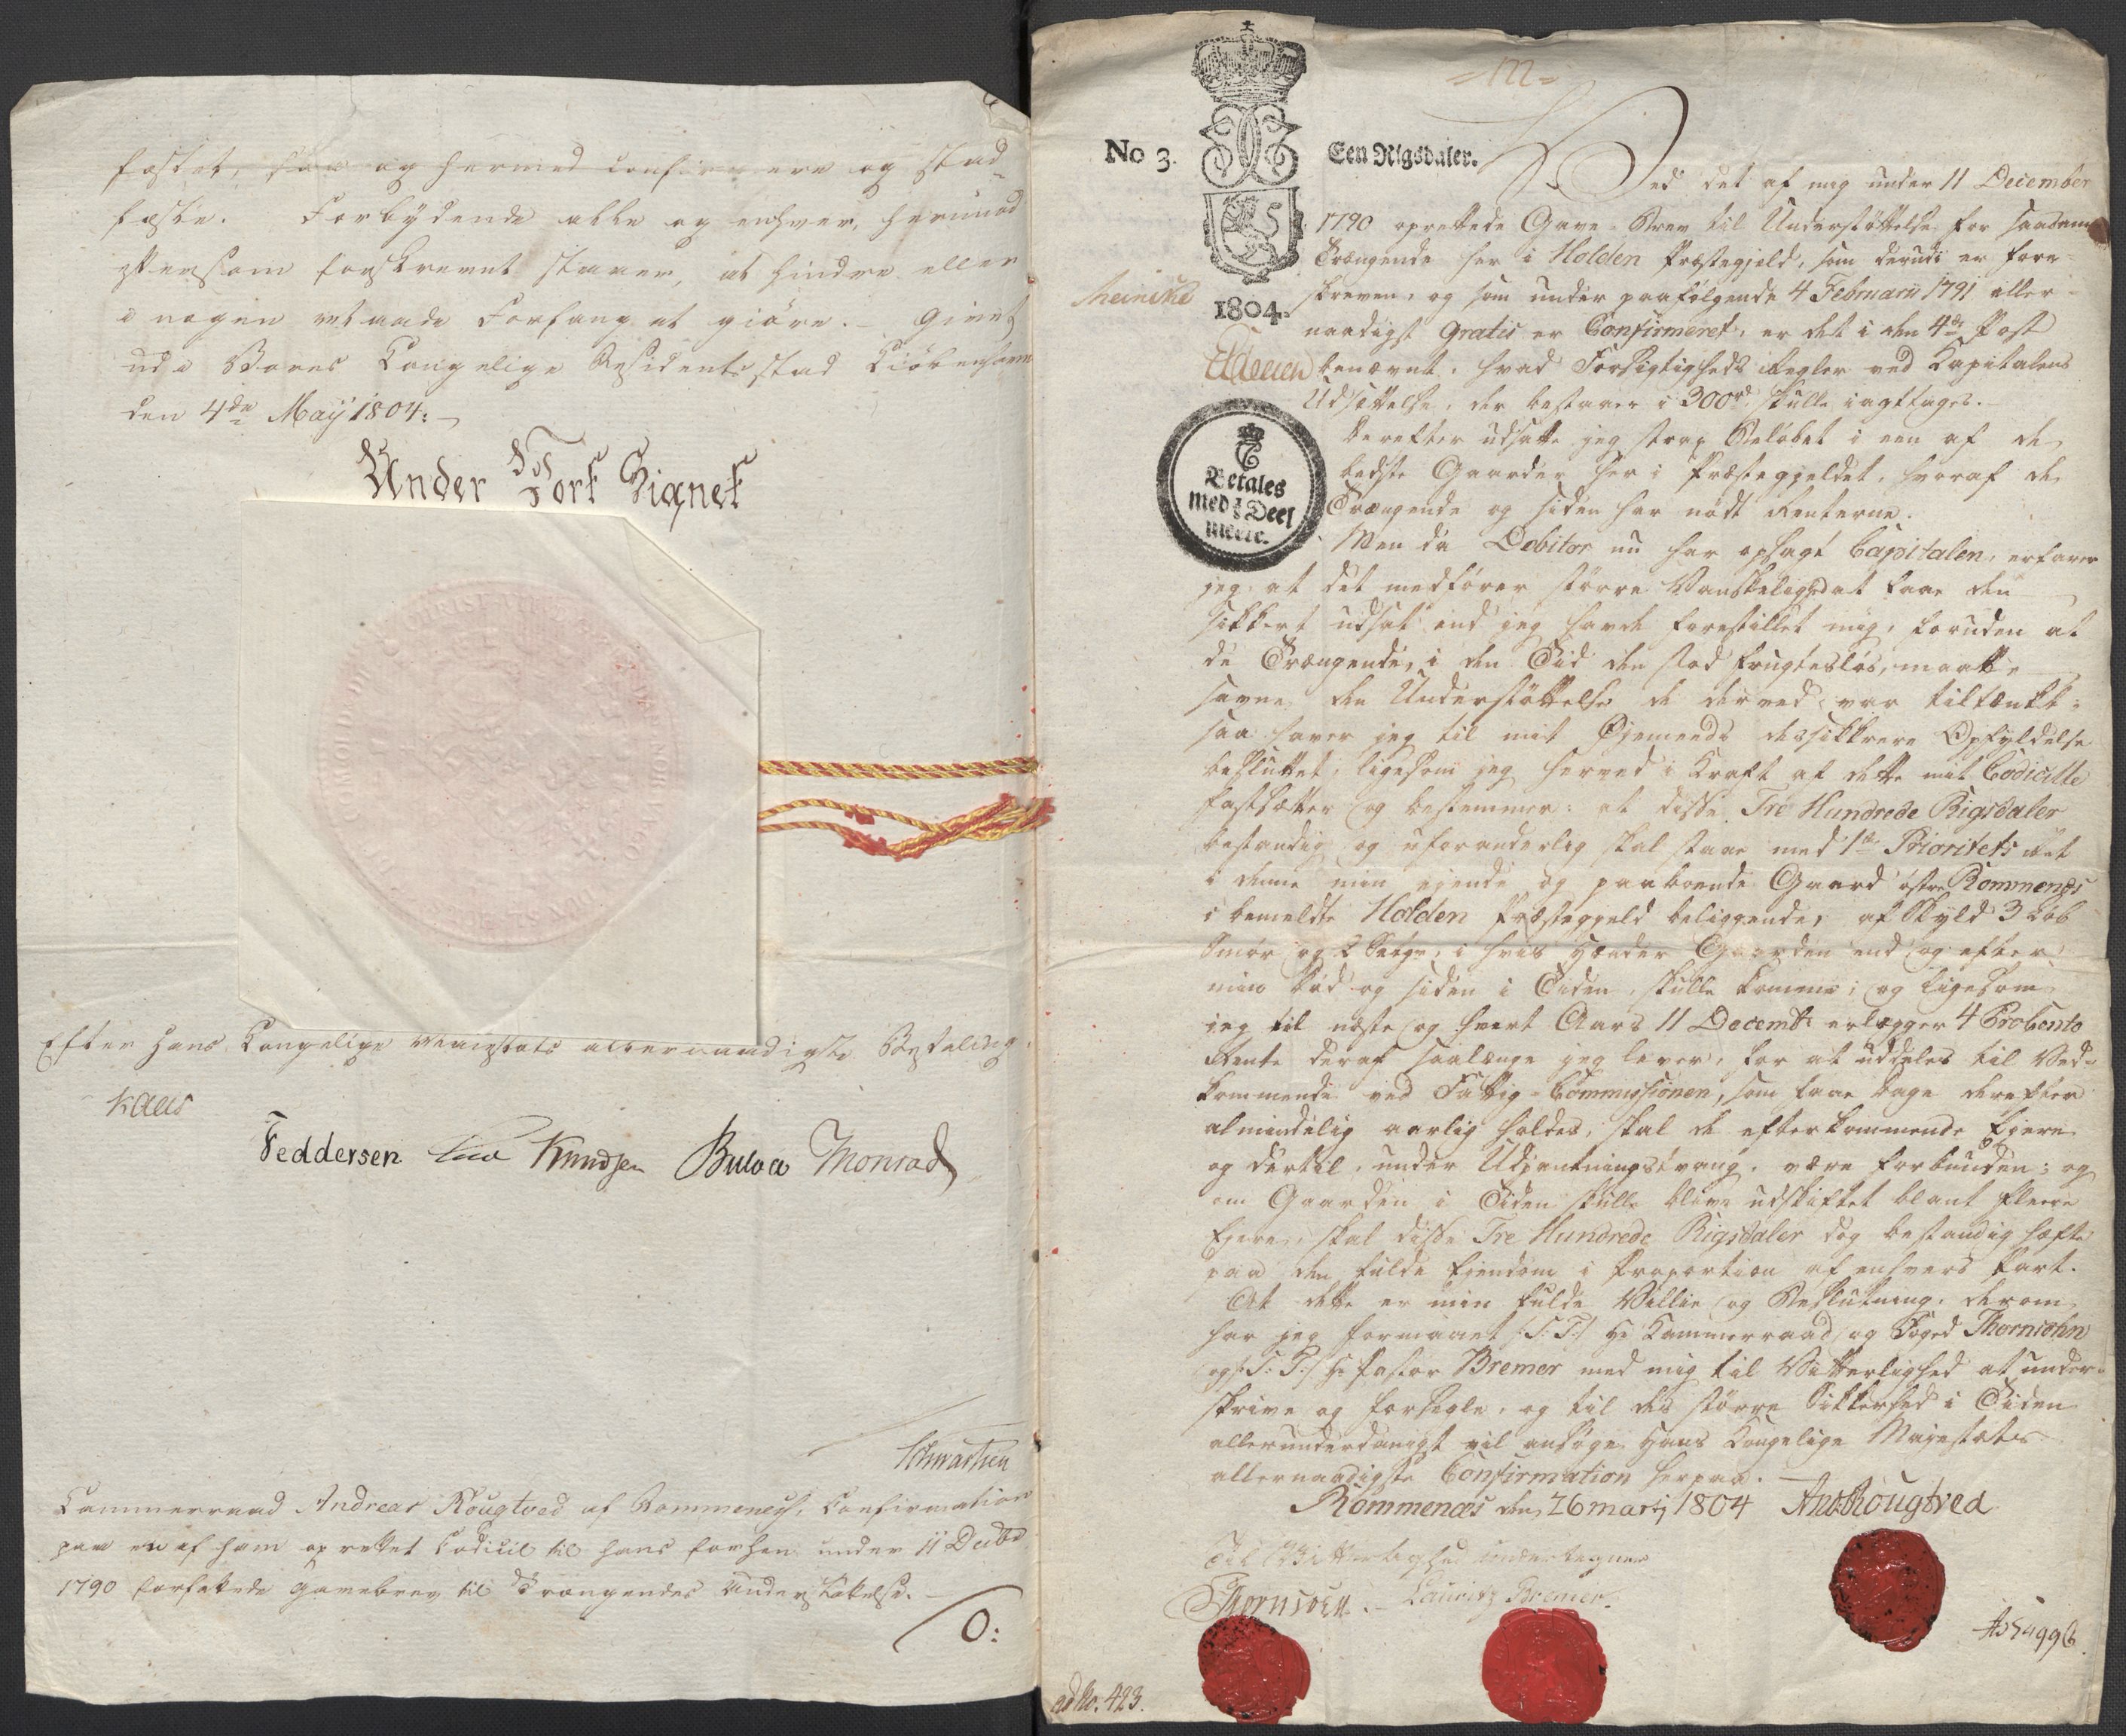 fæstet, saa og hermed confirmere og stad-
fæste. Forbydende alle og enhver, herimod
eftersom forskrevet staaer, at hindre eller
i nogen maade Forfang at giöre. Givet
udi Vores Kongelige Residentsstad Kiöbenhavn
den 4de Maÿ 1804.
Under Vort Signet
Efter Hans Kongelige Maiestæts allernaadigste Befaling.
Kaas
Feddersen Knudsen Bülow Monrad
Schwartzen
Cammerraad Andreas Rougtved af Rommenes, Confirmation
paa en af ham oprettet Codicil til hans forhen under 11 Decbr
1790 forfattede Gavebrev til Trængendes Understöttelse.
O:
No 3. Een Rigsdaler.
1804.
Betales
med ½ Deel
meere.
Ved det af mig under 11 December
1790 oprettede Gave-Brev til Understöttelse for saadanne
Trængende her i Holden Præstegjeld, som derudi er fore-
skreven, og som under paafölgende 4 Februarii 1791 aller-
naadigst gratis er Confirmeret, er det i den 4de Post
benævnt, hvad Forsigtigheds Regler ved Kapitalens
Udsættelse, der bestaaer i 300rd skulle iagttages.
Derefter udsatte jeg strax Belöbet i een af de
bedste Gaarder her i Præstegjeldet, hvoraf de
Trængende og siden har nödt Renterne.
Men da Debitor nu har opsagt Capitalen, erfarer
jeg, at det medförer större Vanskelighed at faae den
sikkert udsat end jeg havde forestillet mig, foruden at
de Trængende, i den Tid den stod frugteslös, maatte
savne den Understöttelse de derved var tiltænkt;
saa haver jeg til mit Öjemeeds dessikkrere Opfyldelse
besluttet, ligesom jeg herved i Kraft af dette mit Codicille
fastsætter og bestemmer: at disse Tre Hundrede Rigsdaler
bestandig og uforanderlig skal staae med 1ste Prioritets Ret
i denne min ejende og paaboende Gaard östre Rommenæs
i bemeldte Holden Præstegjeld beliggende, af Skyld 3 Löb
Smör og 2 Sætgr, i hvis Hænder Gaarden end og efter
min Död og siden i Tiden skulle komme; og ligesom
jeg til næste og hvert Aars 11 Decembr erlægger 4 Procento
Rente deraf saalænge jeg lever, for at uddeles til Ved-
kommende ved Fattig-Commissionen, som faae Dage derefter
almindelig aarlig holdes, skal de efterkommende Ejere
og dertil, under Udpantningstvang, være forbunden; og
om Gaarden i Tiden skulle blive udskiftet blant fleere
Ejere, skal disse Tre Hundrede Rigsdaler dog bestandig hæfte
paa den fulde Ejendom i Proportion af enhvers Part.
At dette er min fulde Villie og Beslutning, derom
har jeg formaaet /:S:T:/ Hr Kammerraad og Foged Thornsohn
og /:S:T:/ Hr Pastor Bremer med mig til Vitterlighed at under-
skrive og forsegle, og til des större Sikkerhed i Tiden
allerunderdanigst vil ansöge Hans Kongelige Majestæts
allernaadigste Confirmation herpaa.
Rommenæs den 26 martj 1804 And:Rougtved
Til Vitterlighed undertegner
Thornsoen. Lauritz Bremer.
ad No. 423.